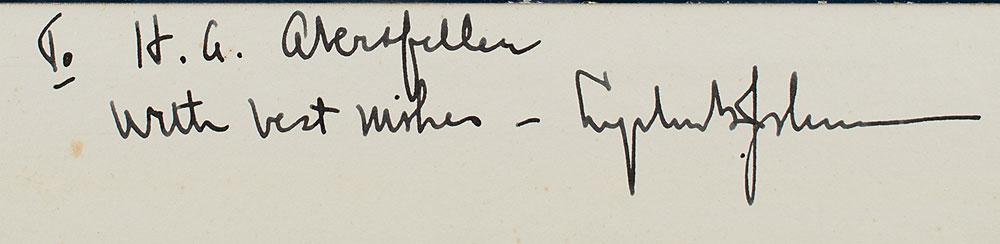 To H. A.
with best wishes – Lyndon B. Johnson